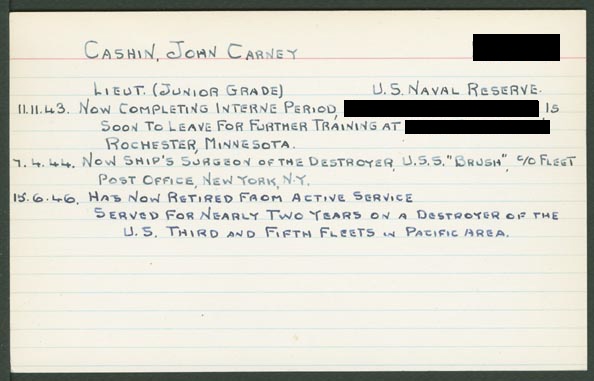 CASHIN, JOHN CARNEY
LIEUT. (JUNIOR GRADE) U.S. NAVAL RESERVE.
11.11.43. NOW COMPLETING INTERNE PERIOD, IS
SOON TO LEAVE FOR FURTHER TRAINING AT
ROCHESTER, MINNESOTA.
7.4.44. NOW SHIP'S SURGEON OF THE DESTROYER, U.S.S. "BRUSH", C/O FLEET
POST OFFICE, NEW YORK, N.Y.
15.6.46. HAS NOW RETIRED FROM ACTIVE SERVICE
SERVED FOR NEARLY TWO YEARS ON A DESTROYER OF THE
U.S. THIRD AND FIFTH FLEETS IN PACIFIC AREA.